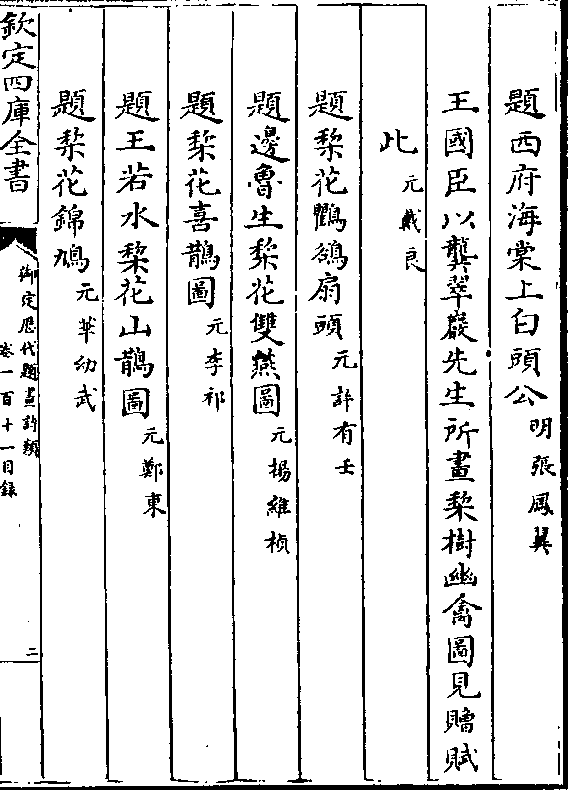 題西府海棠上白頭公 明張鳳翼
王國臣以龔翠巖先生所畫梨樹幽禽圖見贈賦
此 元戴良
題梨花鸜鵒扇頭 元許有壬
題邊魯生梨花雙燕圖 元楊維楨
題梨花喜鵲圖 元李祁
題王若水梨花山鵲圖 元鄭東
題梨花錦鳩 元華幼武
欽定四庫全書
御定歷代題畫詩類
卷一百十一目錄
二